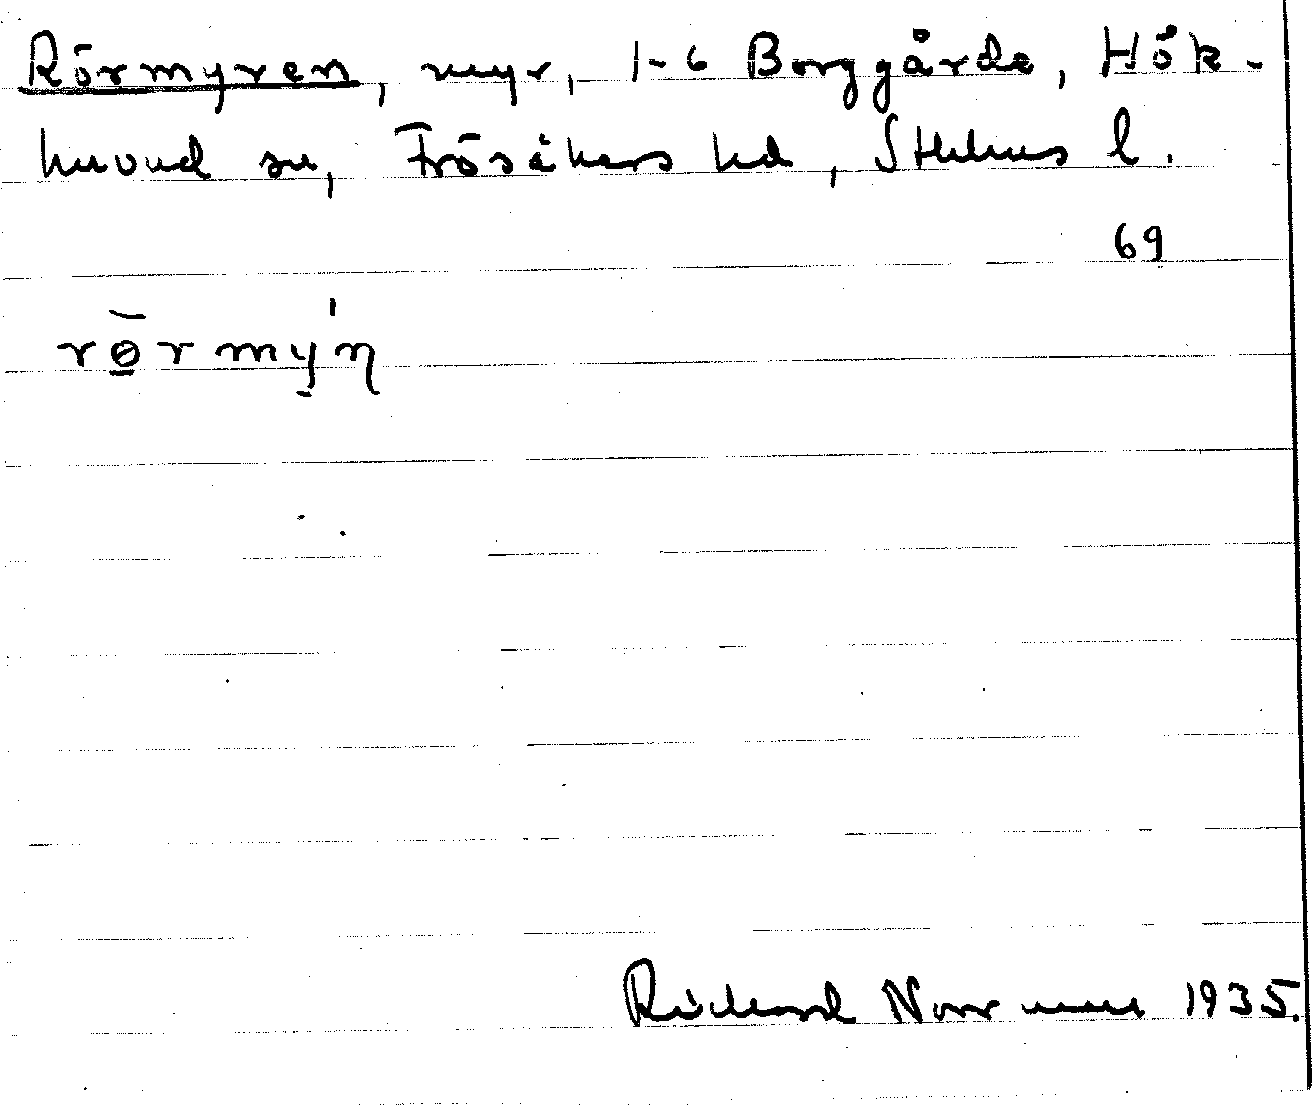 Rörmyren, myr, 1-6 Borggårde, Hök-
huvud sn, Frösåkers hd, Sthlms l.
69
rö̀rmy´n
Richard Norrman 1935.